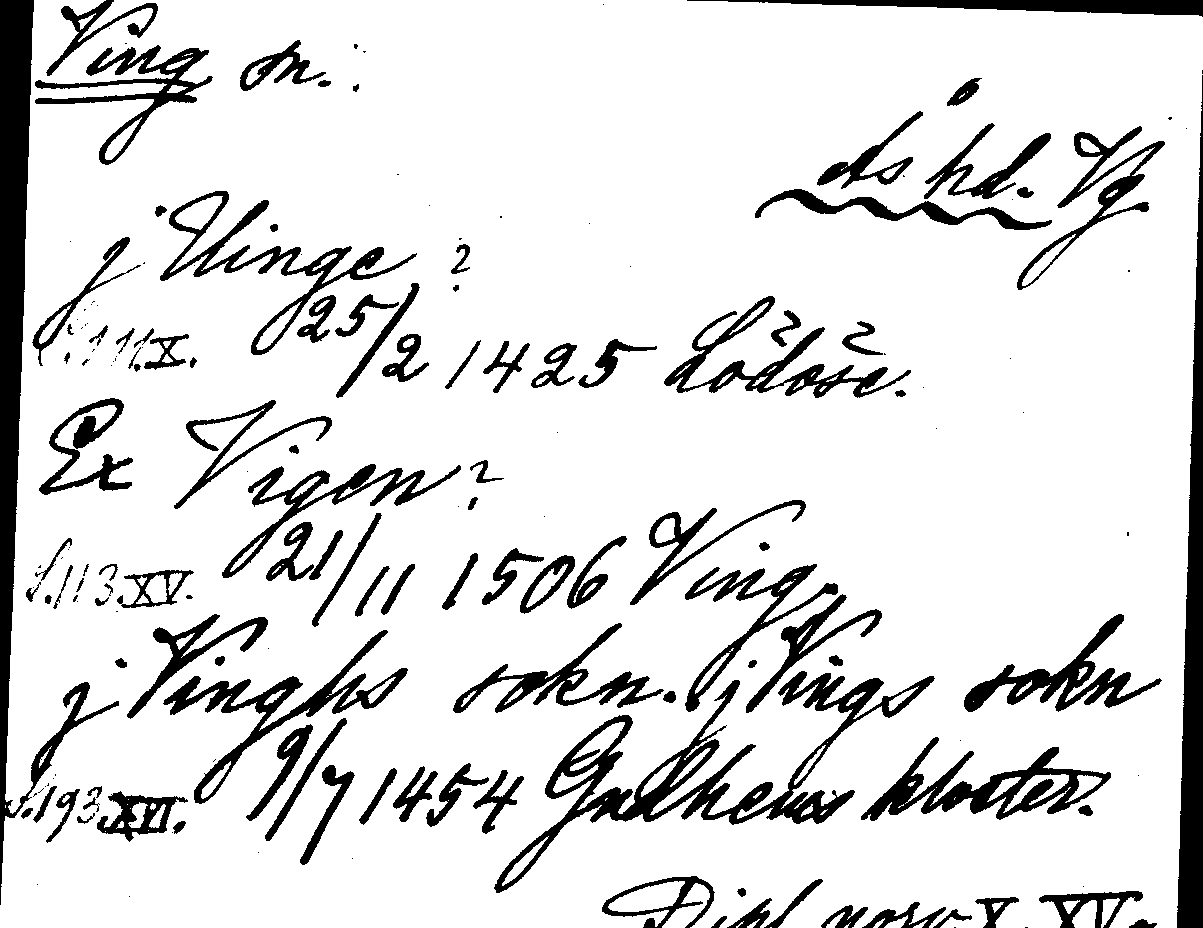 Ving sn.:
Ås hd. Vg.
j Uinge ?
S. 111. X. 25/2 1425 Lödöse.
Ex Vigen ?
S. 113. XV. 21/11 1506 Ving.
j Vinghs sokn. j Vings sokn
S. 193. XVI. 9/7 1454 Gudhems kloster.
Dipl norv X. XV.